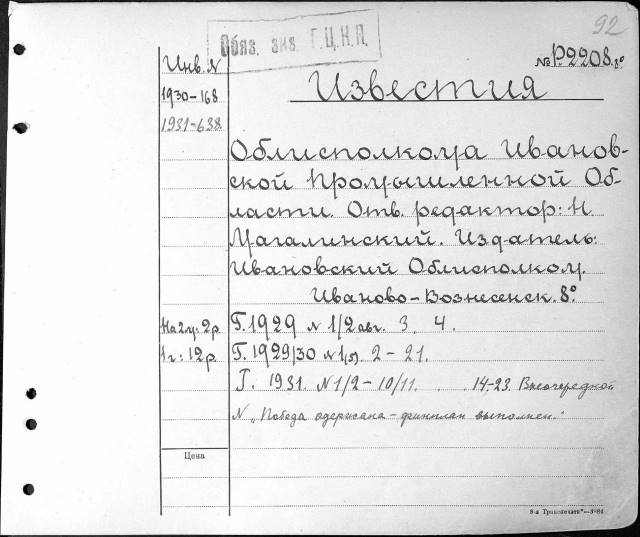 92
Обяз. экз. Г.Ц.К.П.
Инв. N
№ Р2208. 8°
1930-168
Известия
1931-638
Облисполкома Иванов-
ской Промышленной Об-
ласти. Отв. редактор: Н.
Магалинский. Издатель:
Ивановский Облисполком.
Иваново-Вознесенск. 8°
На 2 м: 2 р. Г. 1929 N 1/2 авг. 3. 4.
1 г: 12 р. Г. 1929/30 N 1(5). 2-21.
Г. 1931. N 1/2-10/11. . . 14-23. Внеочередной
N „Победа одержана - финплан выполнен."
Цена
8-я Трансвсвязь"—3-84